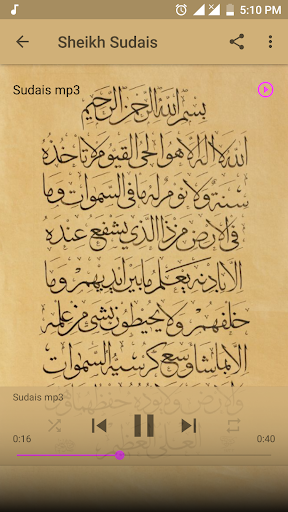 5:10 PM
Sheikh Sudais
Sudais mp3
بسم الله الرحمن الرحيم
الله لا اله الا هو الحي القيوم لا تاخذه
سنة ولا نوم له ما في السموات وما
في الارض من ذا الذي يشفع عنده
الا باذنه يعلم ما بين ايديهم وما
خلفهم ولا يحيطون بشي من علمه
الا بما شا وسع كرسيه السموات
والارض ولا يوده حفظهما وهو
العلي العظيم
Sudais mp3
0:16
0:40